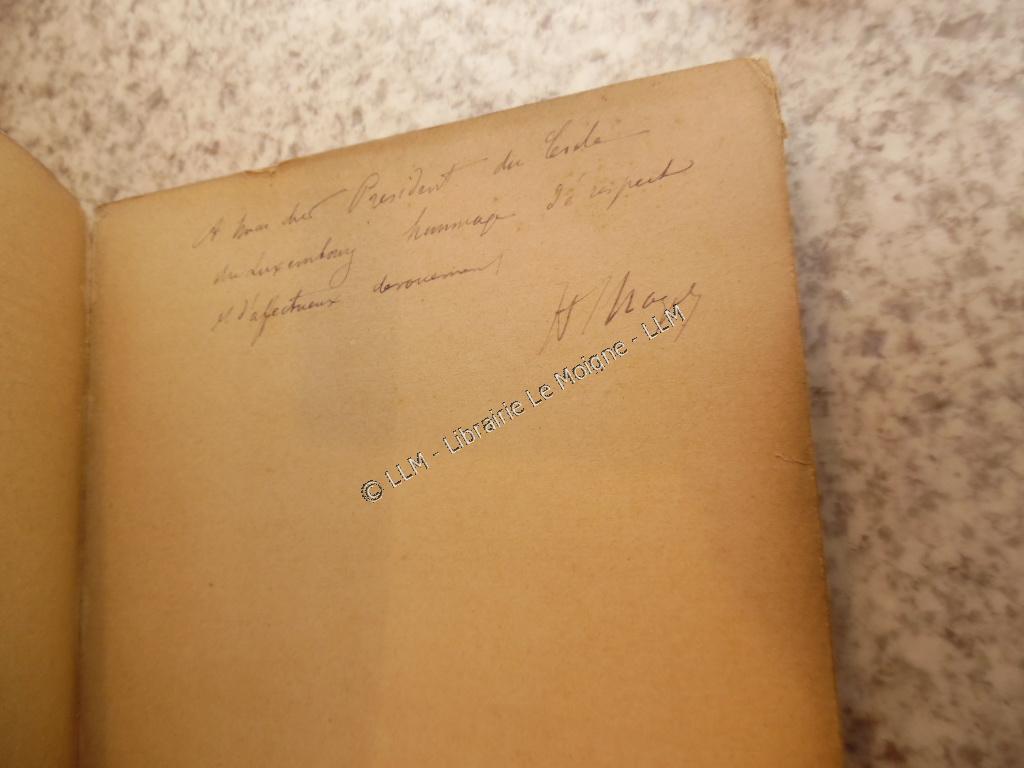 A mon cher Président du Cercle
du Luxembourg hommage de respect
et d'afectueux devouement
© LLM - Librairie Le Moigne - LLM